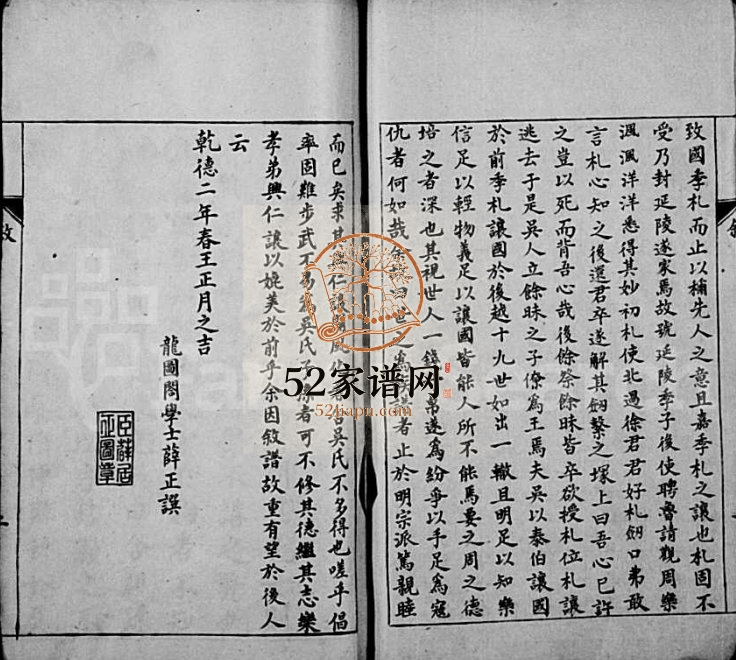 致國季札而止以補先人之意且嘉季札之讓也札固不
受乃封延陵遂家焉故號延陵季子後使聘魯請觀周樂
渢渢洋洋悉得其妙初札使北過徐君君好札劒口弗敢
言札心知之後還君卒遂解其劒繫之塚上曰吾心已許
之豈以死而背吾心哉後餘祭餘昧皆卒欲授札位札讓
逃去于是吳人立餘昧之子僚為王焉夫吳以泰伯讓國
於前季札讓國於後越十九世如出一轍且明足以知樂
信足以輕物義足以讓國皆能人所不能焉要之周之德
培之者深也其視世人一錢帛遂為紛爭以手足為寇
仇者何如哉余故曰世之為譜者止於明宗派篤親睦
而已矣求其與仁讓吳氏不多得也嗟乎倡
率固難步武不易為吳氏子孫者可不修其德繼其志樂
孝弟興仁讓以媲美於前乎余因敘譜故重有望於後人
云
乾德二年春王正月之吉
龍圖閣學士薛正譔
臣薛居正圖章
52家谱网
52jiapu.com